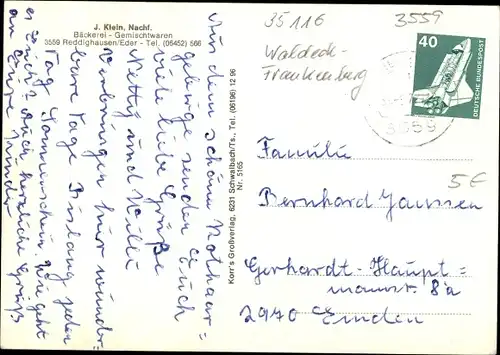 J. Klein, Nachf.
Bäckerei - Gemischtwaren
3559 Reddighausen/Eder - Tel. (06452) 566
Aus dem schönen Rothaar=
gebirge senden Euch
viele liebe Grüße
Hetty und Willi
verbringen hier wunder=
bare Tage Bislang jeden
Tag Sonnenschein. Wie geht
es Euch? Auch herzliche Grüße
an Eure Kinder
Korr's Großverlag, 6231 Schwalbach/Ts., Tel. (06196) 12 96
Nr. 5165
35116
3559
Waldeck-
Frankenberg
40
DEUTSCHE BUNDESPOST
3559
Familie
5€
Bernhard Janssen
Gerhardt-Haupt=
mannstr. 8a
2970 Emden